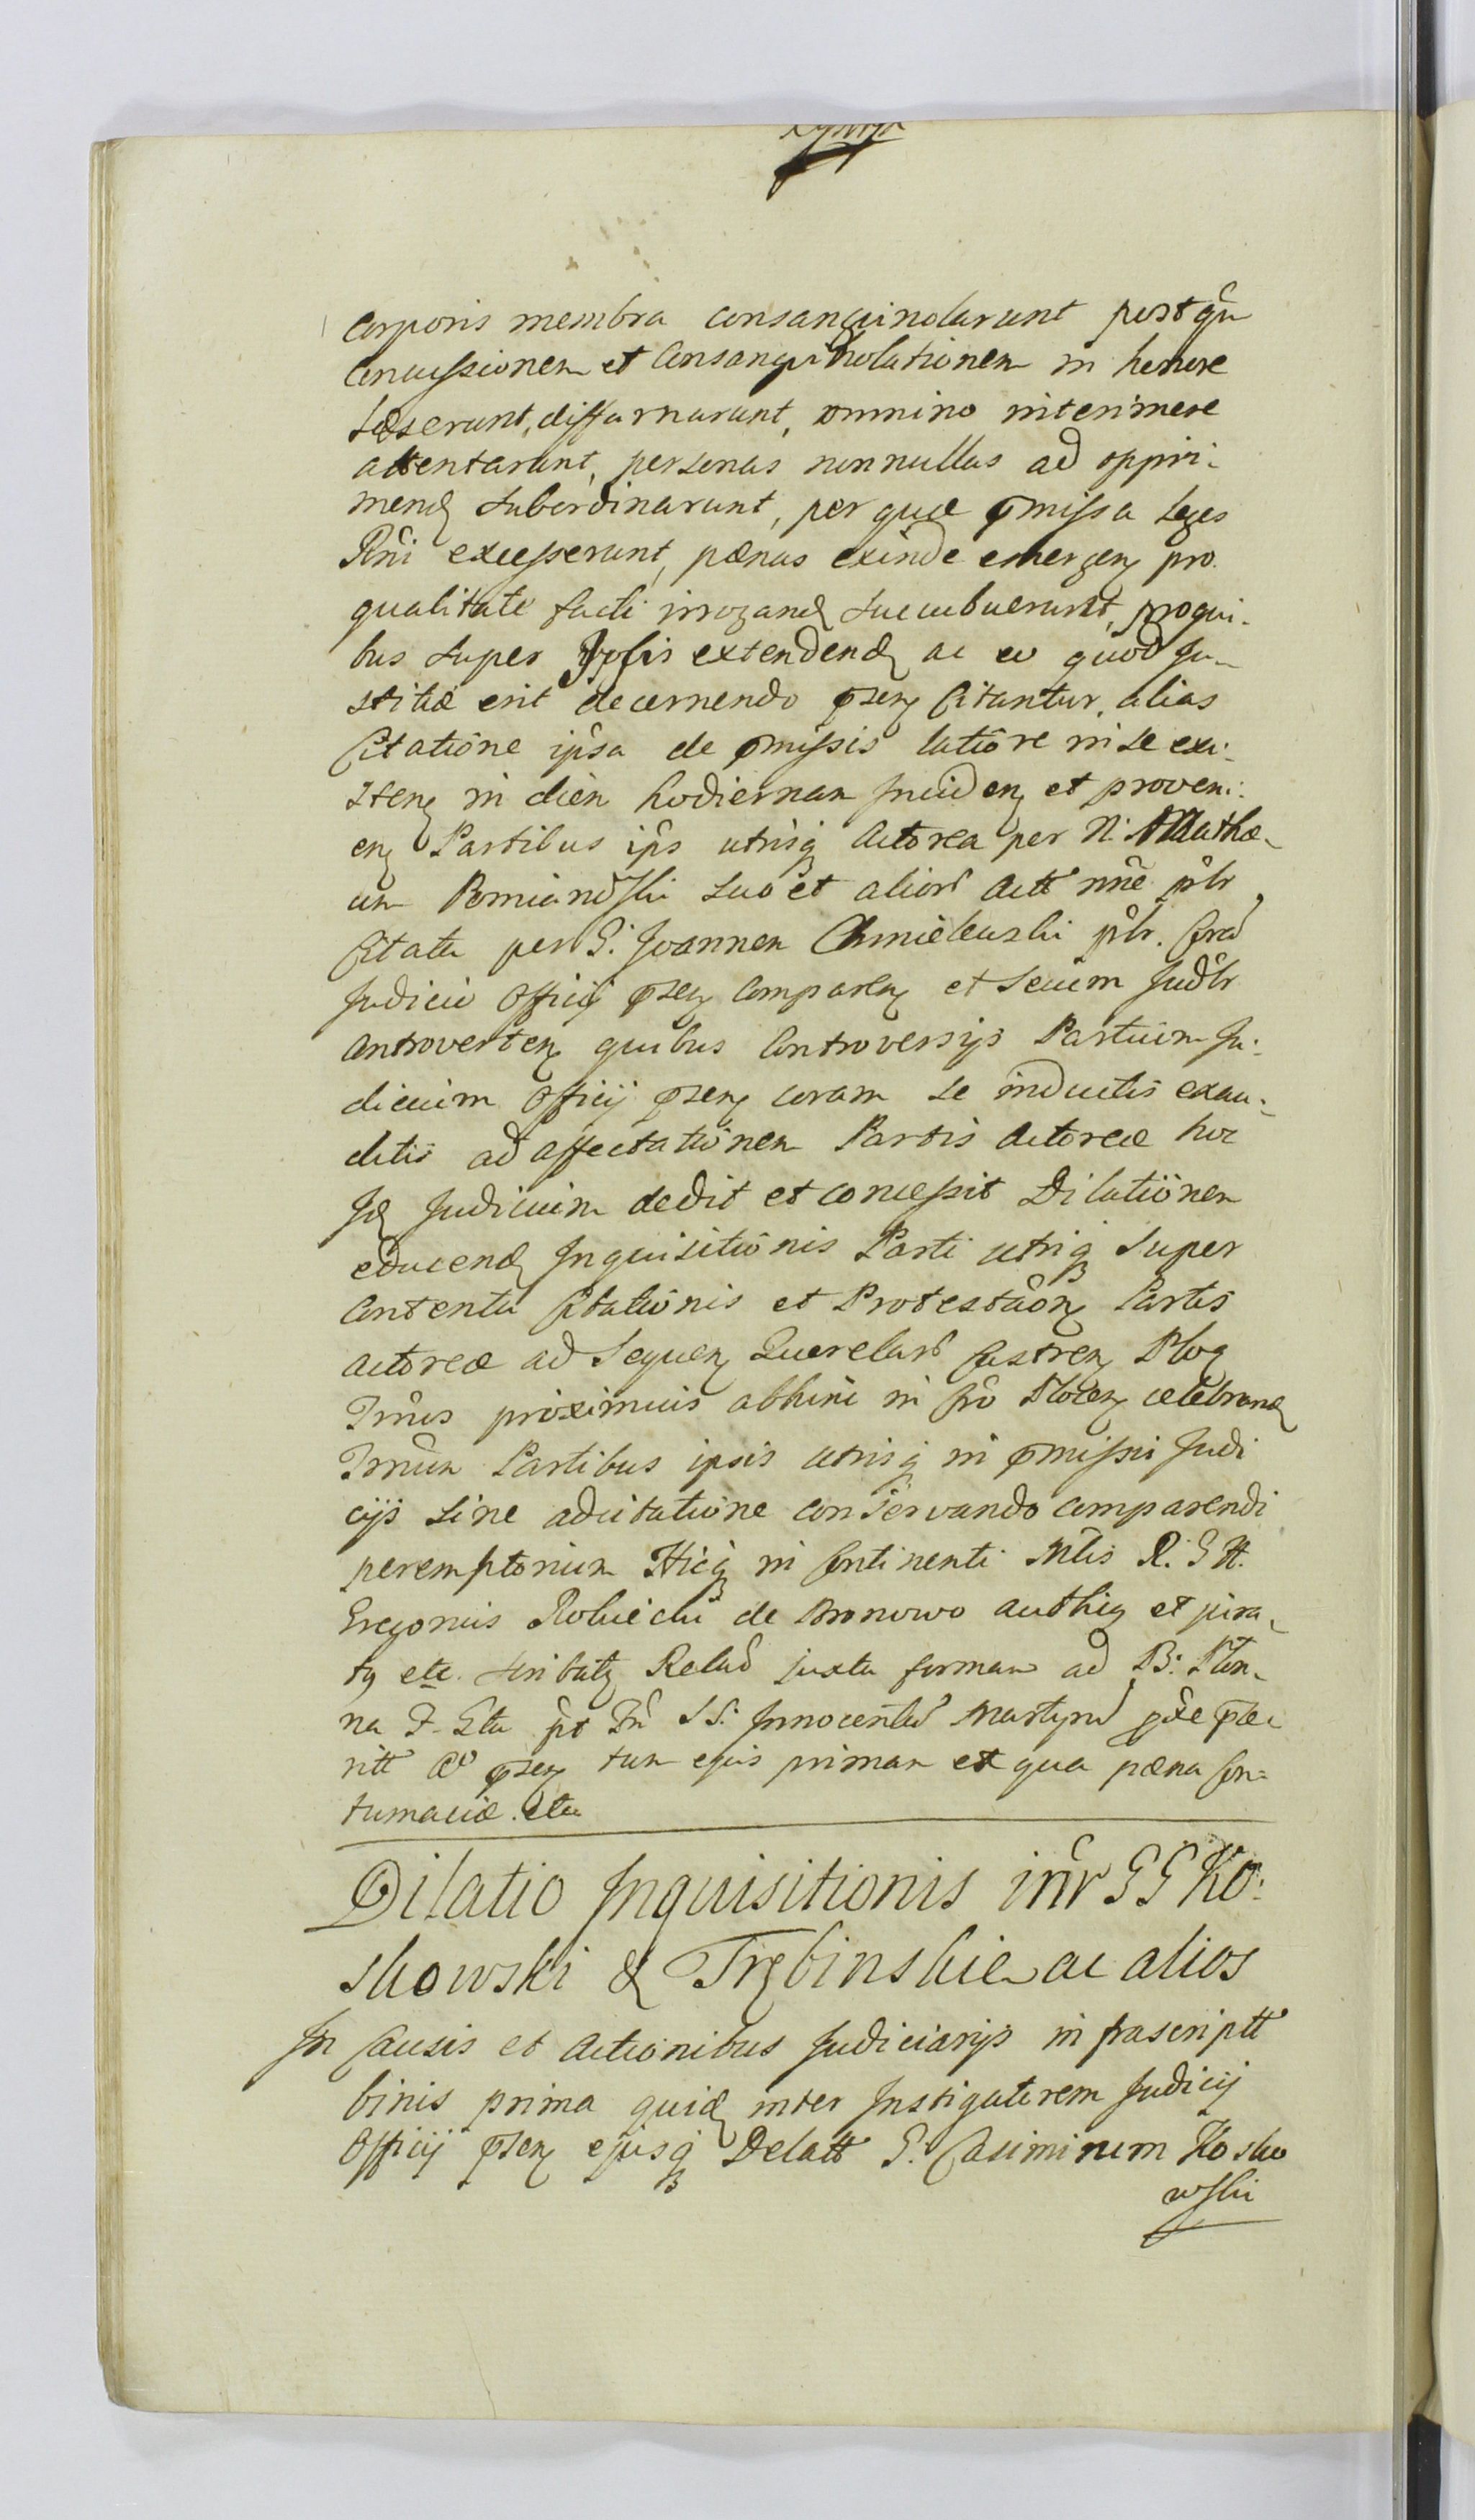 Corporis membra consanguinolarunt post qm̂
Concussionem et Consanguinolationem in honore
læserunt, diffamarunt, omnino interimere
attentarunt, personas nonnullas ad oppri-
mend subordinarunt, per quæ pmissa Leges
Rni excesserunt, pænas exinde emergen pro
qualitate facti irrogand succubuerunt, pro qui-
bus super Ipsis extendend ac eo quod Ju-
stitiæ erit decernendo psen Citantur, alias
Citatione ipsa de pmissis latiore in se exi-
sten in diem hodiernam inciden et proveni-
en Partibus ips utrisq Actorea per N: Mathæ-
um Pomianowski suo et alior Actt nne plr
Citata per G: Joannem Chmielewski plr. Cord
Judicio Officij psen Comparen et secum Judlr
Controverten quibus Controversijs Partium Ju-
dicium Officij psen coram se inductis exau-
ditis ad affectationem Partis Actoreæ hoc
Id Judicium dedit et concessit Dilationem
educend Inquisitionis Parti utriq super
Contenta Citationis et Protestaon Partis
Actoreæ ad Sequen Querelard Castren Ploc
Trnos proximius abhinc in fro Plocen celebrand
Trnum Partibus ipsis utrisq in pmissis Judi
cijs sine adcitatione conservando comparendi
peremptorium Hicq in Continenti Mtis R: G H.
Gregorius Robiecki de Bronowo authen et jura-
tq etc. scribatq Relad juxta formam ad B: Plon-
na F. Sta pt Fr SS: Innocentiud Martyrud pxe præ-
ritt Ao psen tum ejus primam et qua pæna Con-
tumaciæ. etc
Dilatio Inquisitionis inr̂ GG Ko-
skowski & Trębinskie ac alios
In Causis et Actionibus Judiciarijs infrascriptt
binis prima quid inter Instigatorem Judicij
Officij psen ejusq Delatt G. Casimirum Kosko
wski